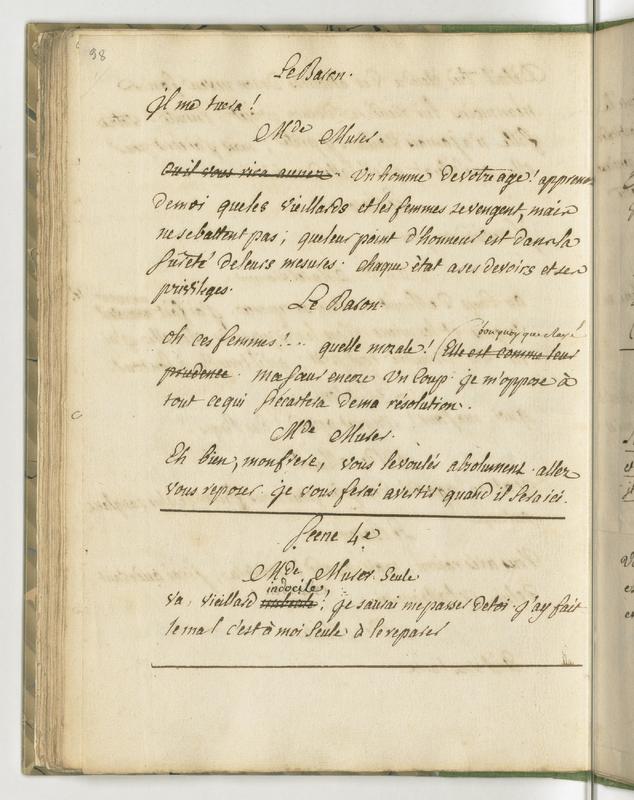 98
Le Baron.
Il me tuera!
Mde Murer.
Qu'il vous rica Un homme de votre age! apprenez
de moi que les vieillards et les femmes se vengent, mais
ne se battent pas; que leur point d'honneur est dans la
sureté de leurs mesures. chaque état a ses devoirs et ses
privileges.
Le Baron.
oh ces femmes!... quelle morale! (Elle est comme leur
prudence. ma sœur encore Un Coup. je m'oppose à
tout ce qui s'écartera de ma résolution.
Mde Murer.
Eh bien, mon frere, vous le voulés absolument. allez
vous reposer. je vous ferai avertir quand il sera ici.
Scene 4e
Mde Murer. Seule
indocile
va, vieillard ! je saurai me passer de toi. j'ay fait
le mal c'est à moi seule à le reparer